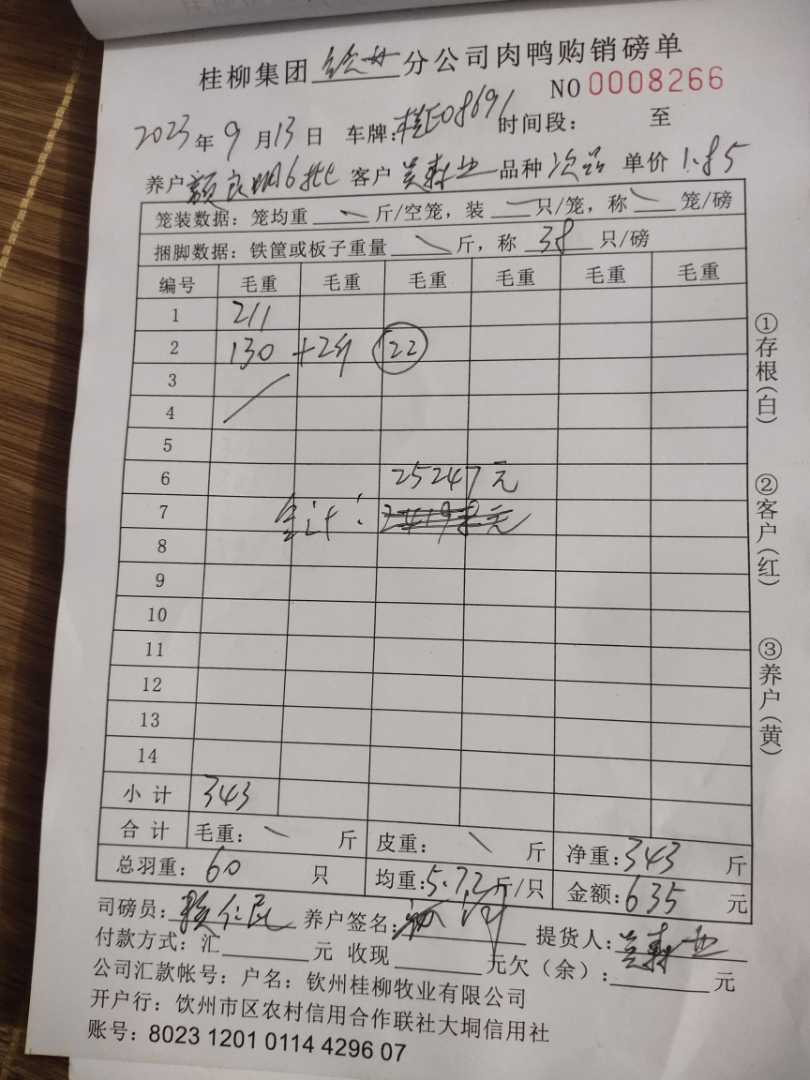 桂柳集团 钦州 分公司肉鸭购销磅单
NO 0008266
2023年9月13日 车牌:桂E08691 时间段: 至
养户 良明6批 客户 品种 次品 单价 1.85
笼装数据:笼均重 斤/空笼,装 只/笼,称 笼/磅
捆脚数据:铁筐或板子重量 斤,称 38 只/磅
编号 毛重 毛重 毛重 毛重 毛重 毛重
1 211
2 130 +2斤 22
3
4
5
6 25247元
7 合计:
8
9
10
11
12
13
14
小计 343
合计 毛重: 斤 皮重: 斤 净重:343 斤
总羽重:60 只 均重:5.72斤/只 金额:635 元
司磅员: 养户签名: 提货人:
付款方式:汇 元 收现 元欠(余): 元
公司汇款帐号:户名:钦州桂柳牧业有限公司
开户行:饮州市区农村信用合作联社大垌信用社
账号:8023 1201 0114 4296 07
①存根(白)
②客户(红)
③养户(黄)